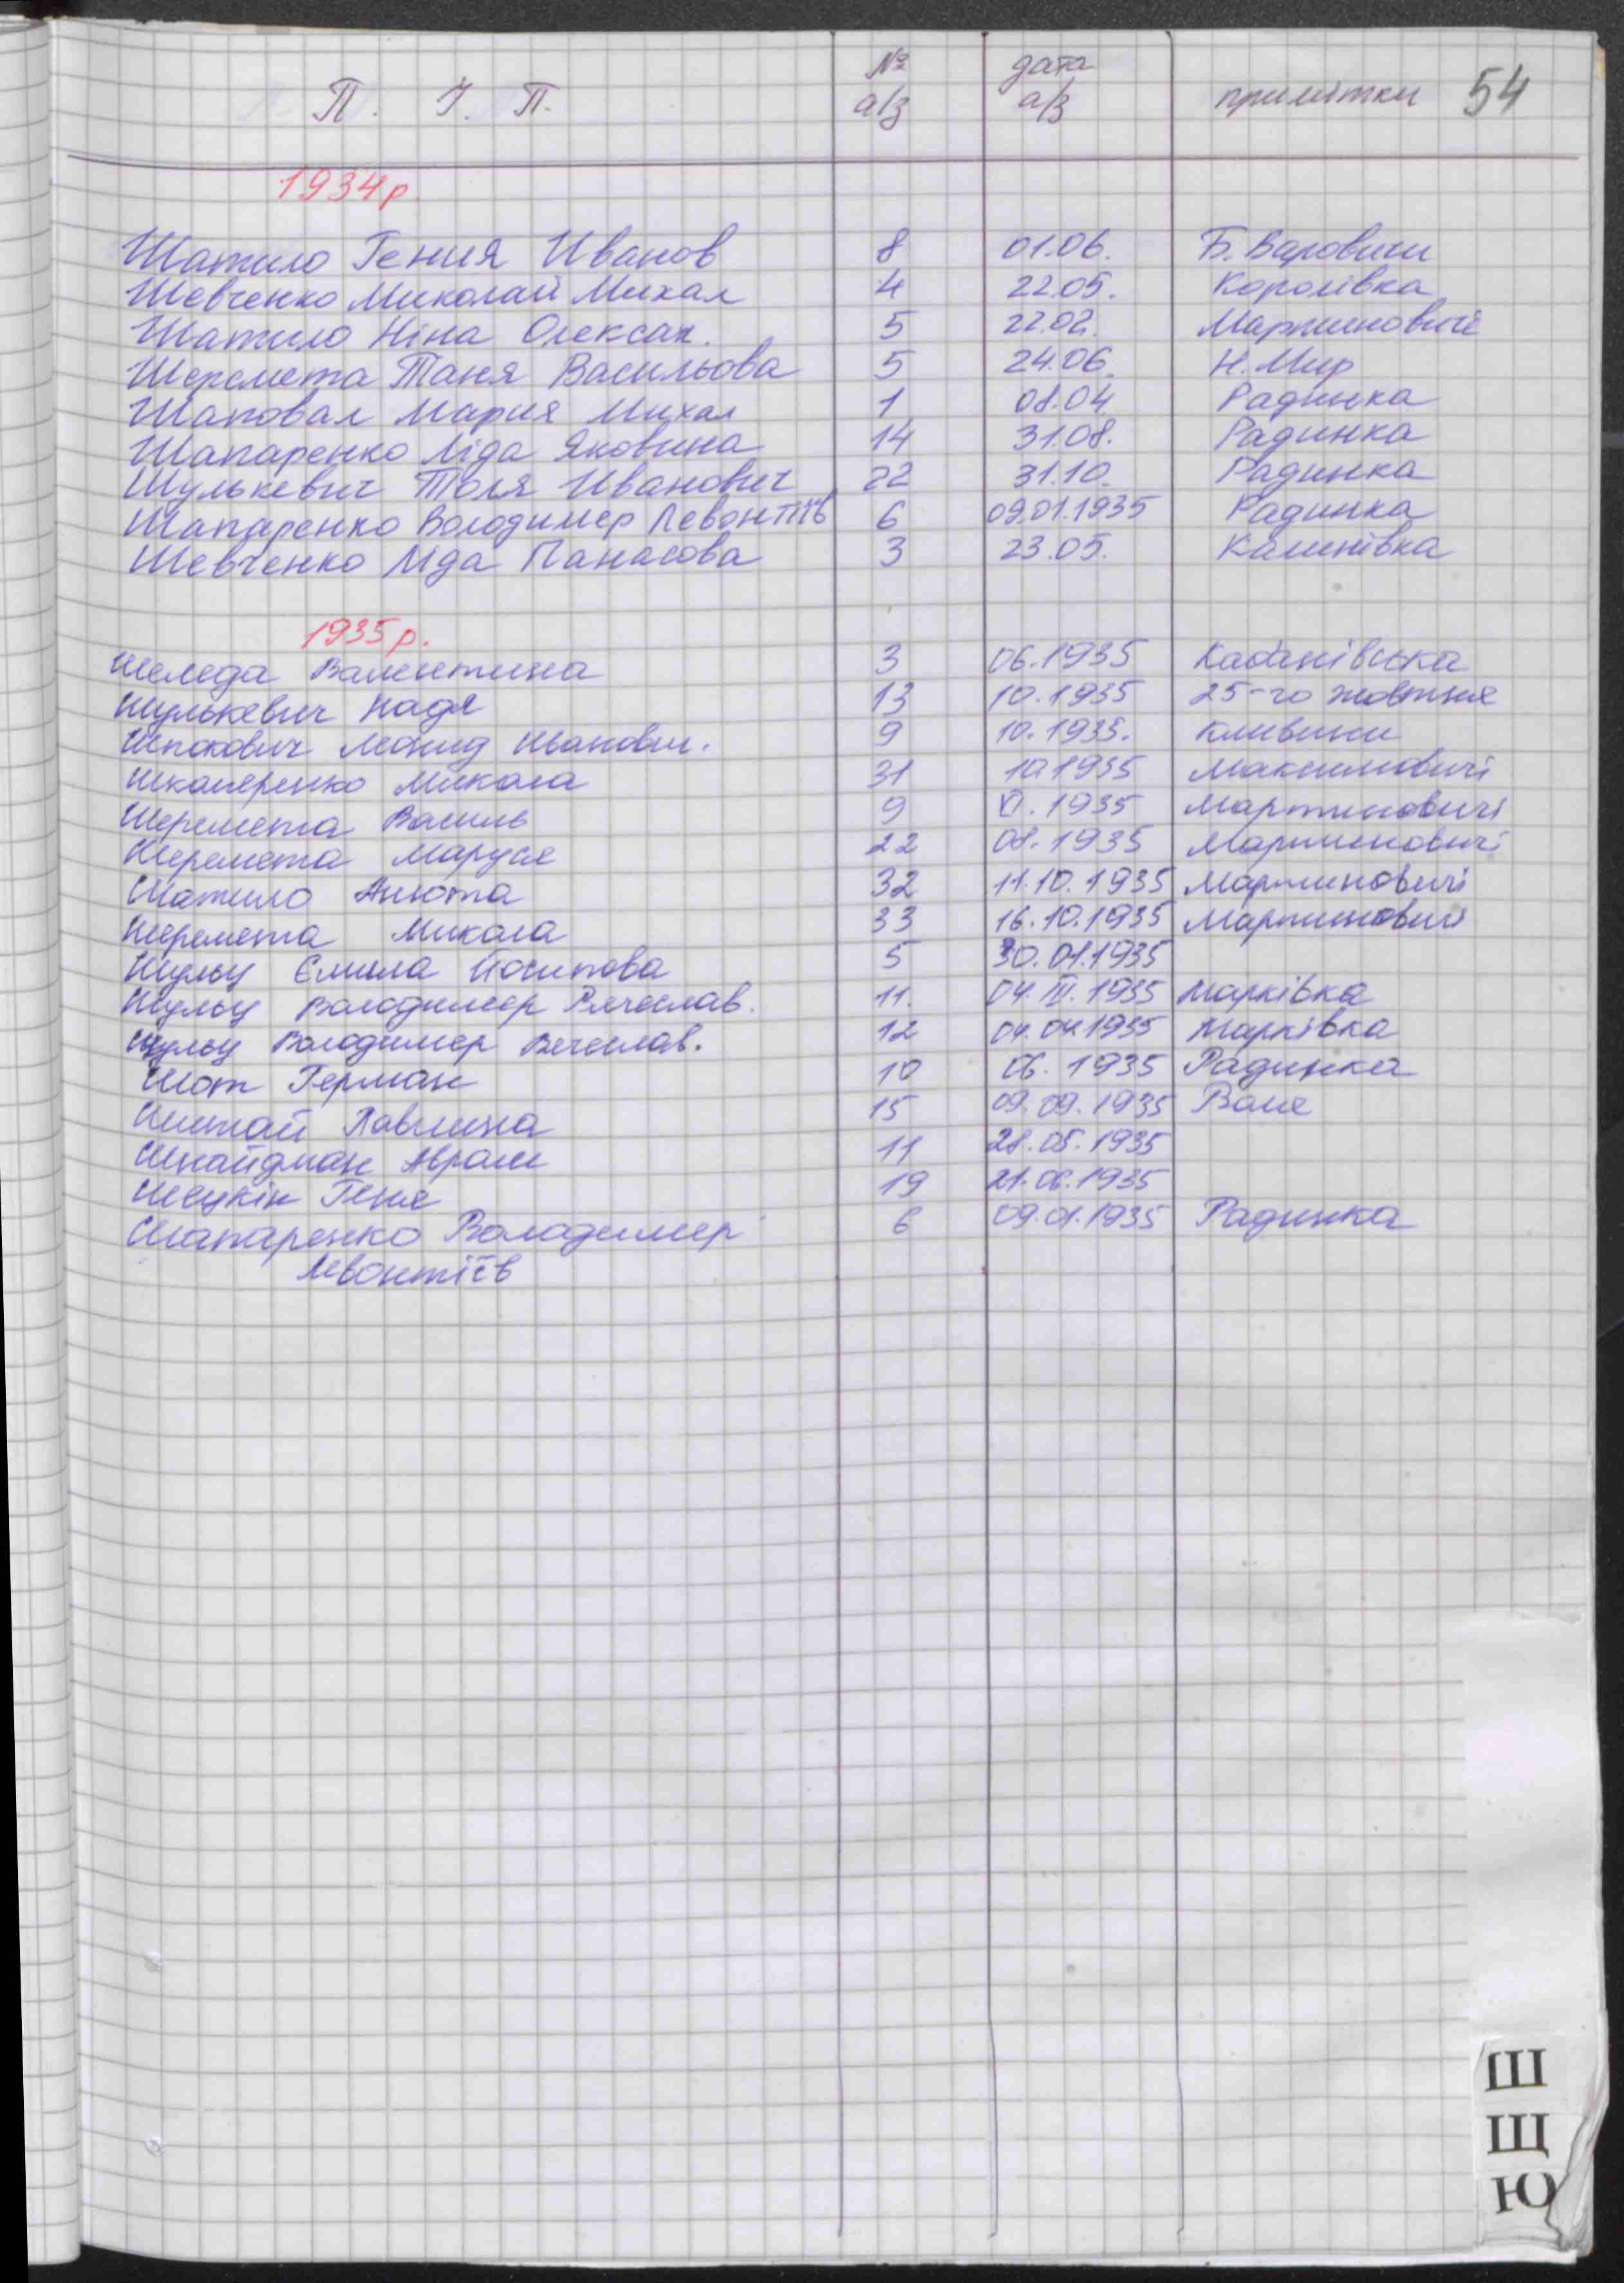 П. І. П. № а/з дата а/з примітки 54
1934р.
Шатило Гения Иванов 8 01.06. Б. Варовичи
Шевченко Миколай Михал 4 22.05. Королівка
Шатило Ніна Олексан. 5 22.02. Мартиновичі
Шеремета Таня Васильова 5 24.06. Н. Мир
Шаповал Мария Михал 1 08.04 Радинка
Шапаренко Ліда Яковина 14 31.08. Радинка
Шулькевич Толя Иванович 22 31.10. Радинка
Шапаренко Володимер Левонтіїв 6 09.01.1935 Радинка
Шевченко Ліда Панасова 3 23.05. Калинівка
1935р.
Шеледа Валентина 3 06.1935
Шулькевич Надя 13 10.1935 25-го жовтня
Шпакович Леонид Иванович. 9 10.1935. Кливини
Микола 31 10.1935 Максимовичі
Шеремета Василь 9 VI.1935 Мартиновичі
Шеремета Маруся 22 08.1935 Мартиновичі
Шатило Анюта 32 11.10.1935 Мартиновичі
Шеремета Микола 33 16.10.1935 Мартиновичі
Шульц Єміла Йосипова 5 30.01.1935
Шульц Володимер Вячеслав. 11. 04.IV.1935 Марківка
Шульц Володимер Вечеслав. 12 04.04.1935 Марківка
Шот Герман 10 06.1935 Радинка
Шитай Павлина 15 09.09.1935
Шнайдман Аврам 11 28.05.1935
Геня 19 21.06.1935
Шапаренко Володимер 6 09.01.1935 Радинка
Левонтіїв
Ш
Щ
Ю